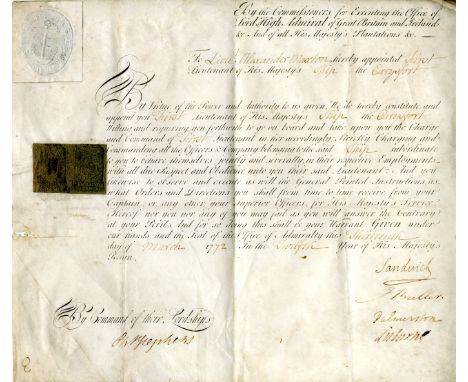 By the Commissioners for Executing the Office of
Lord High Admiral of Great Britain and Ireland
& And of all His Majesty's Plantations &c
To Lieut Alexander hereby appointed First
Lieutenant of His Majesty's Ship the Carysfort
By Virtue of the Power and Authority to us given We do hereby constitute and
appoint you First Lieutenant of His Majesty's Ship the Carysfort
Willing and requiring you forthwith to go on board and take upon you the Charge
and Command of First Lieutenant in her accordingly. Strictly Charging and
commanding all the Officers & Company belonging to the said Ship subordinate
to you to behave themselves jointly and severally in their respective Employments
with all due Respect and Obedience unto you their said Lieutenant And you
likewise to observe and execute as well the General Printed Instructions as
what Orders and Directions you shall from time to time receive from your
Captain or any other your Superior Officers for His Majesty's Service.
Hereof nor you nor any of you may fail as you will answer the Contrary
at your Peril And for so doing this shall be your Warrant Given under
our hands and the Seal of the Office of Admiralty this
day of March 1772 In the Twelfth Year of His Majesty's
Reign
Sandwich
J Buller
Palmerston
Lisburne
By Command of their Lordships
Ph Stephens